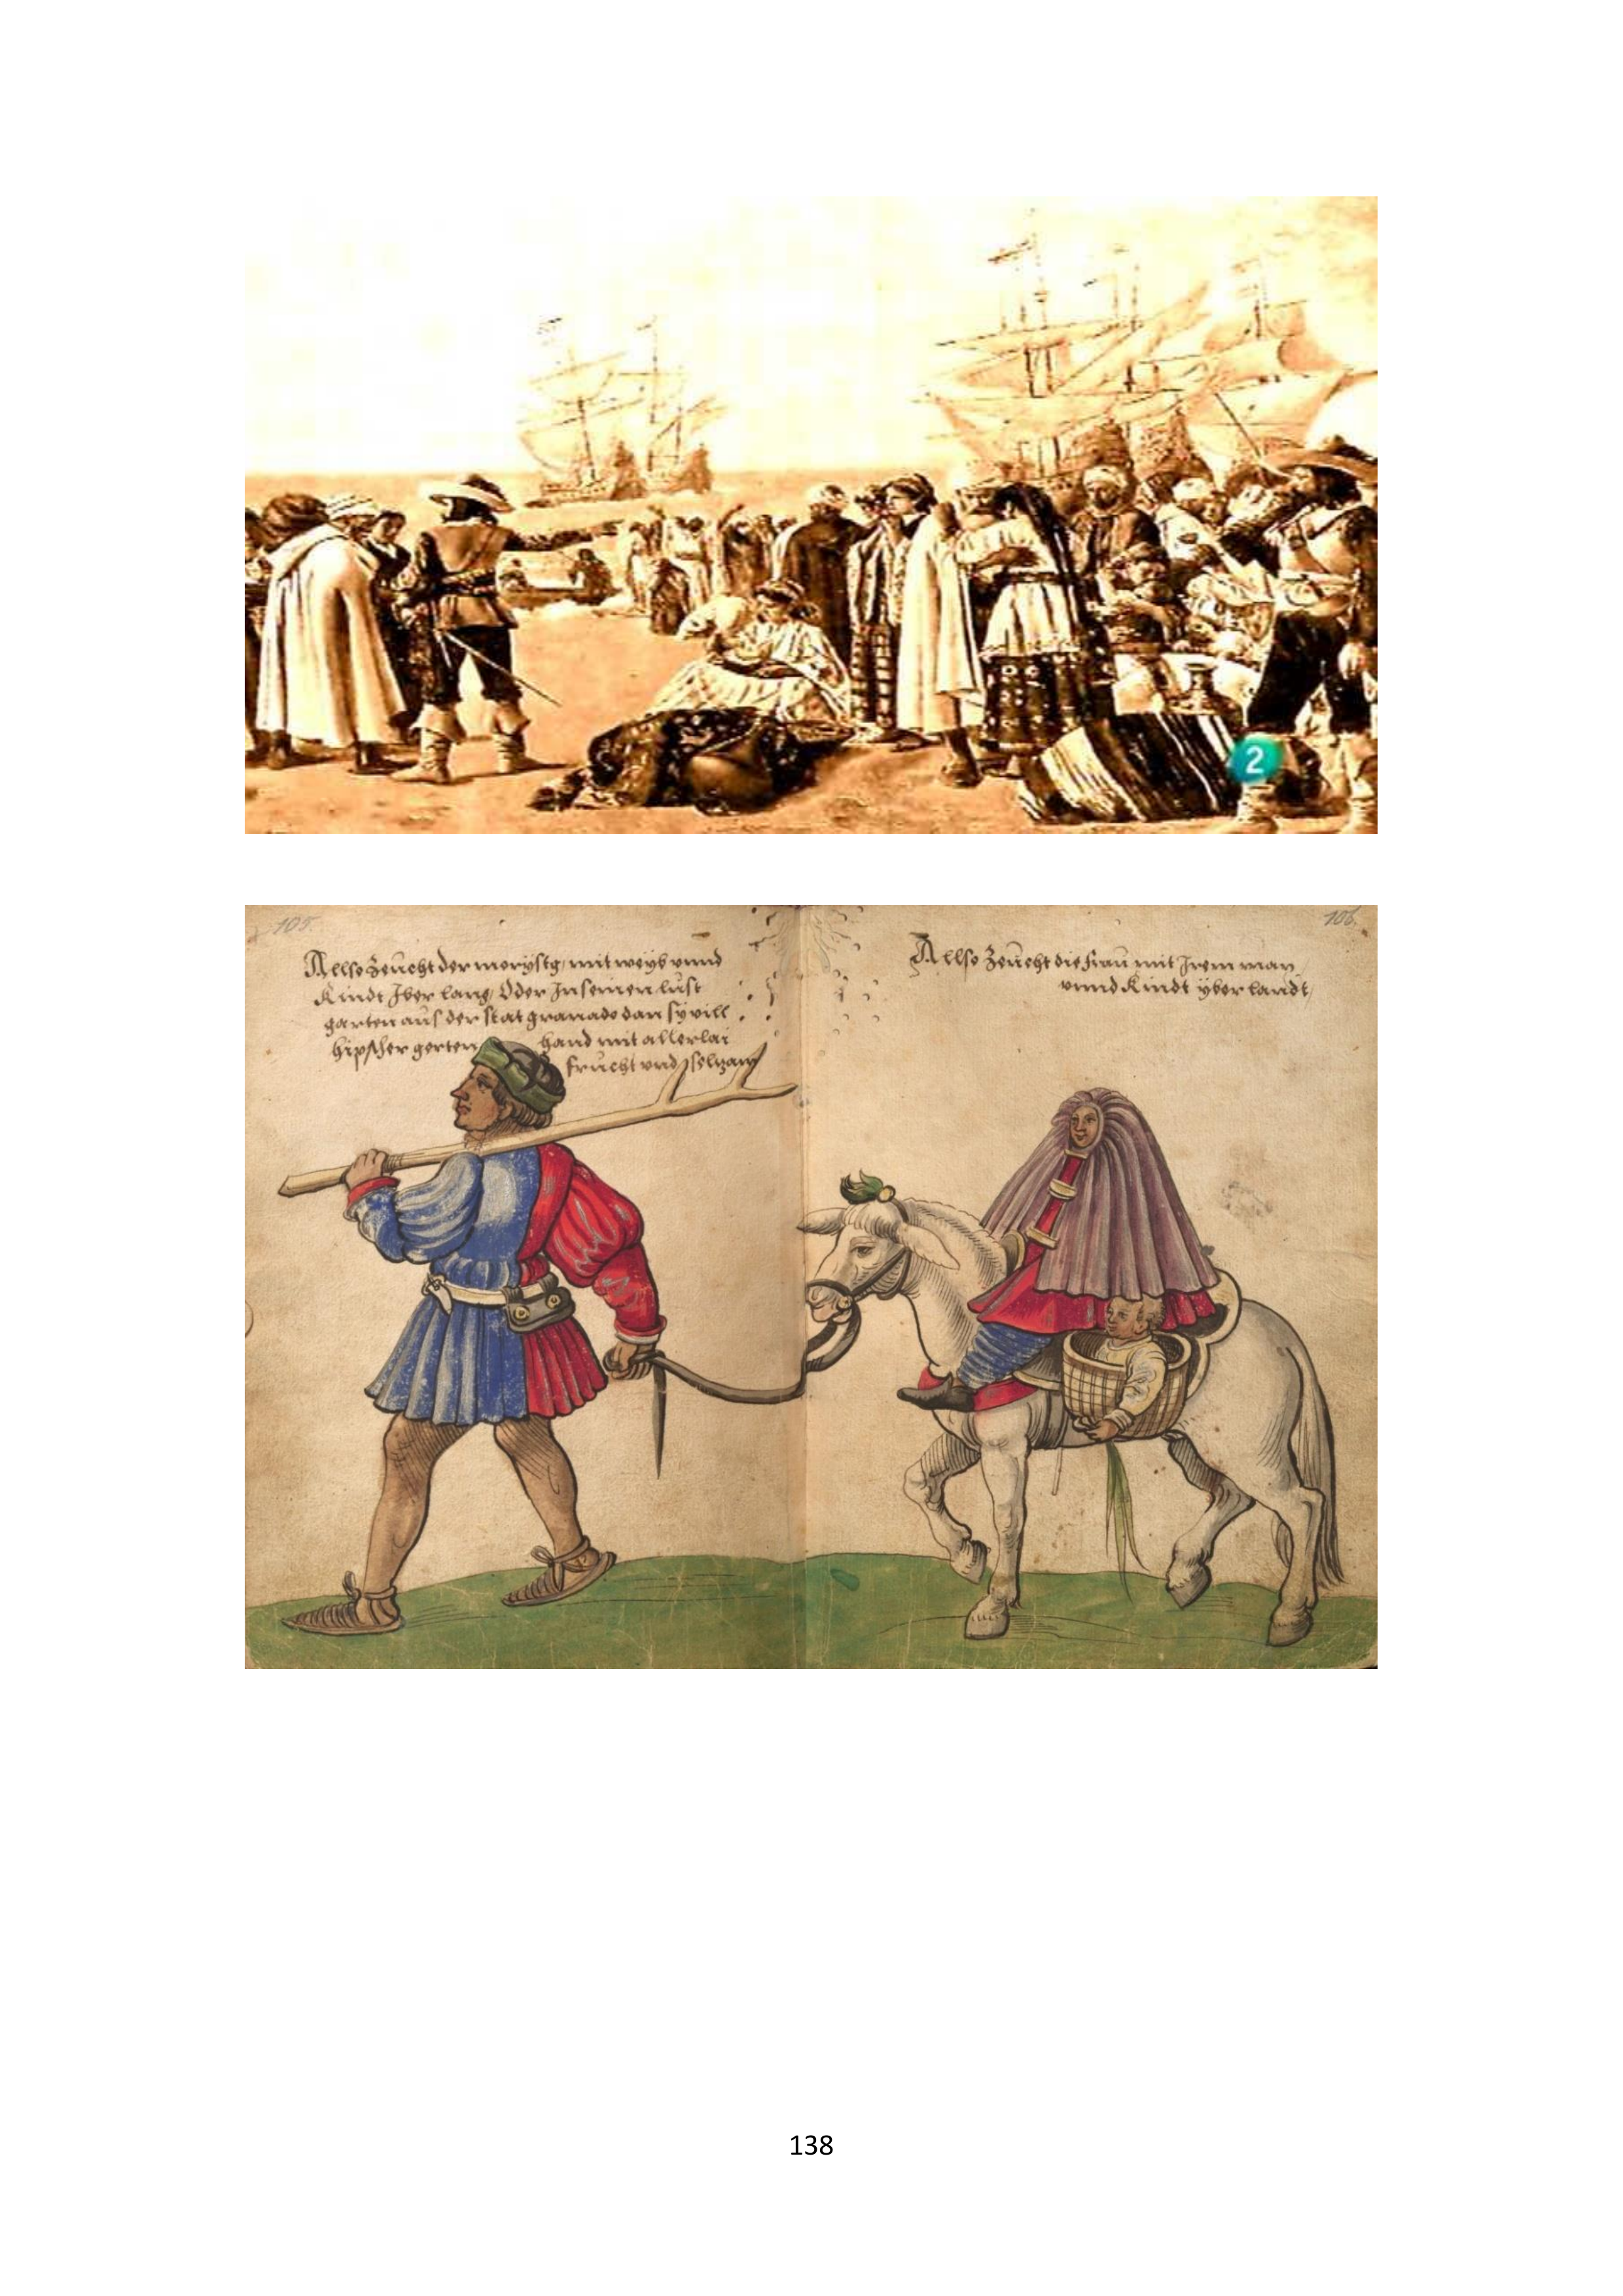 2
105.
106.
Allso Zeücht der morystg, mit weyb vnnd
Kindt Iber lang, Oder In seinen lüst
garten aüs der stat granado dan sy vill
hipscher gerten hand mit allerlai
frücht vnd selzam
Allso Zeücht die fraü mit Irem man,
vnnd Kindt yber landt,
138